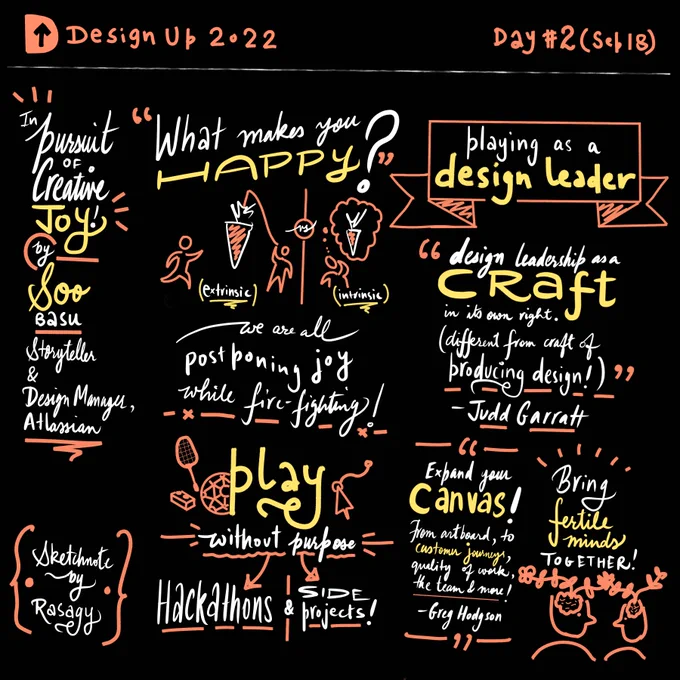 D Design Up 2022
Day #2 (Sep 18)
In
Pursuit
OF
Creative
Joy!
by
Soo
BASU
Storyteller
&
Design Manager,
Atlassian
Sketchnote
by
Rasagy
“What makes you
HAPPY?”
vs
(extrinsic)
(intrinsic)
we are all
postponing joy
while fire-fighting!
play
without purpose
Hackathons
&
SIDE
projects!
playing as a
design leader
“design leadership as a
CRAft
in its own right.
(different from craft of
producing design!)”
- Judd Garratt
“
Expand your
Canvas!
From artboard, to
customer journeys,
quality of work,
the team & more!
- Greg Hodgson
”
Bring
fertile
minds
TOGETHER!